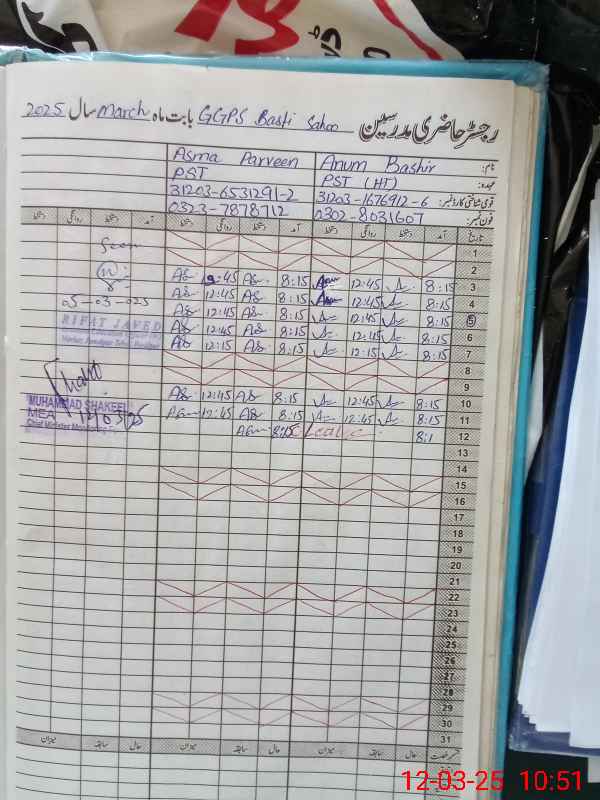 رجسٹر حاضری مدرسین GGPS Basti Sahoo بابت ماہ March سال 2025
نام: Anum Bashir Asma Parveen
عہدہ: PST (HT) PST
قومی شناختی کارڈ نمبر: 31203-1676912-6 31203-6531291-2
فون نمبر: 0302-8031607 0323-7878712
تاریخ آمد دستخط روانگی دستخط آمد دستخط روانگی دستخط آمد دستخط روانگی دستخط
1 Seen
2
3 8:15 12:45 8:15
4 8:15 12:45 8:15 12:45
05-03-025
5 8:15 12:45 8:15 12:45
RIFAT JAVED
6 8:15 12:45 8:15 12:45
7 8:15 12:15 8:15 12:15
8
9
10 8:15 12:45 8:15 12:45
MUHAMMAD SHAKEEL
11 8:15 12:45 8:15 12:45
MEA
12 8:1 Leave 8:15
13
14
15
16
17
18
19
20
21
22
23
24
25
26
27
28
29
30
31
حال سابقہ میزان حال سابقہ میزان حال سابقہ میزان
12-03-25 10:51